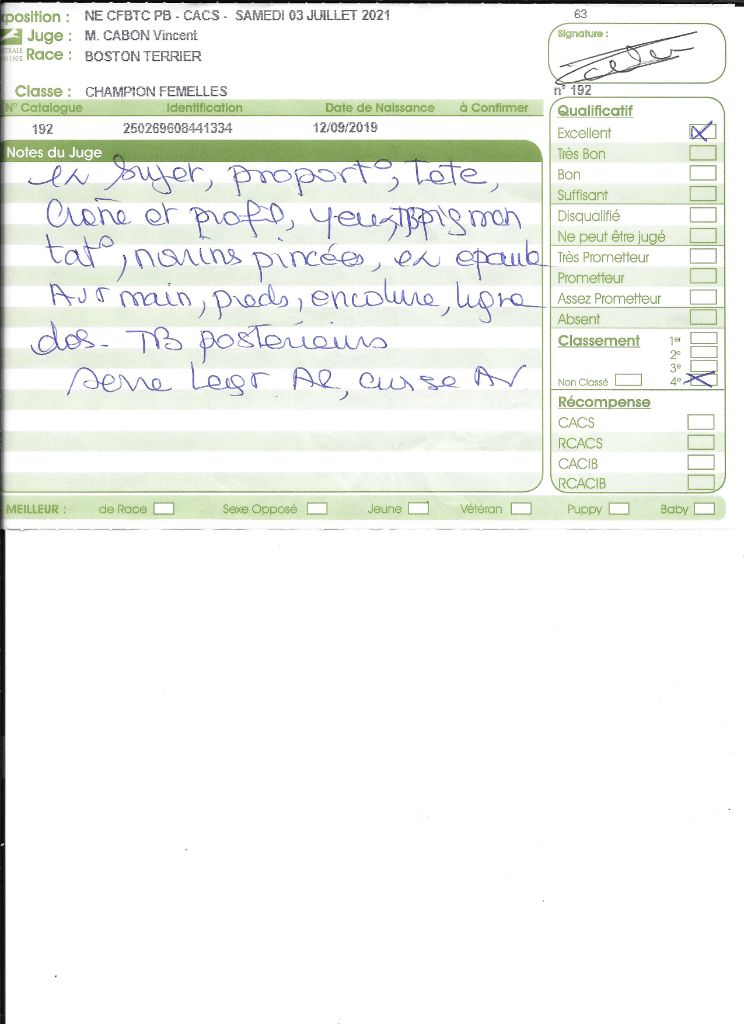 xposition : NE CFBTC PB - CACS - SAMEDI 03 JUILLET 2021
63
Juge : M. CABON Vincent
Race : BOSTON TERRIER
Classe : CHAMPION FEMELLES
Signature :
n° 192
N° Catalogue Identification Date de Naissance à Confirmer
192 250269608441334 12/09/2019
Notes du Juge
ex sujet, proport°, tete,
Crâne et profil, yeux, TB pigmen
tat°, narins pincées, ex epaule
Avt main, pieds, encolure, ligne
dos - TB posterieurs
serre Legt AR, AV
Qualificatif
Excellent
Très Bon
Bon
Suffisant
Disqualifié
Ne peut être jugé
Très Prometteur
Prometteur
Assez Prometteur
Absent
Classement
1er
2e
3e
Non Classé 4e
Récompense
CACS
RCACS
CACIB
RCACIB
MEILLEUR : de Race Sexe Opposé Jeune Vétéran Puppy Baby